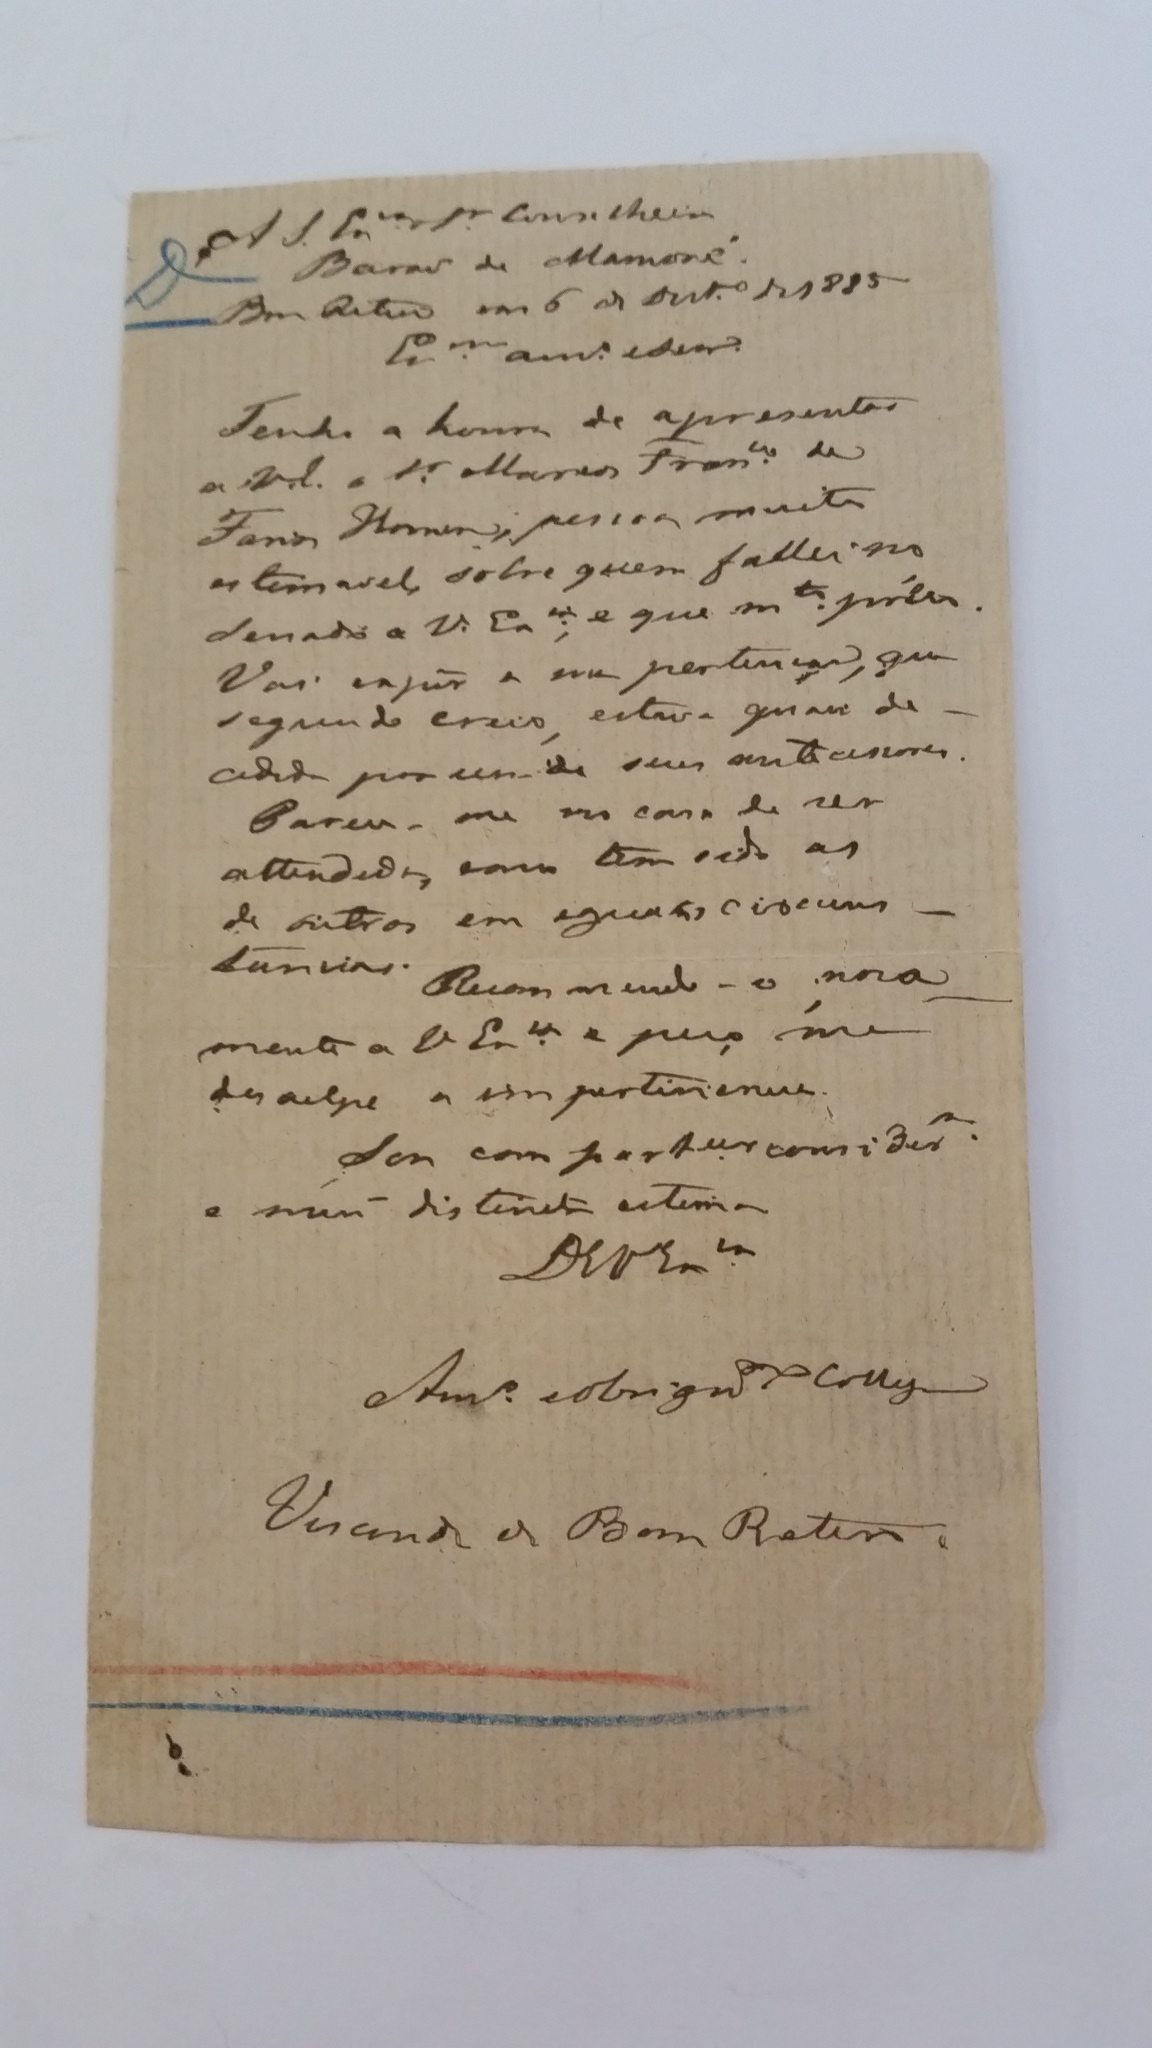 A S. Ex.cia o Sr. Conselheiro
Barão de Mamoré.
Bom Retiro em 6 de Outr.o de 1885
Ex.mo am.o e Senr.
Tenho a honra de apresentar
a V.E. o Sr. Marcos Fran.co de
Faria Homem, pessoa muito
estimavel, sobre quem fallei no
Senado a V. Ex.cia, e que m.to prézo.
Vai expôr a sua pertenção, que
segundo creio, estava quasi de-
cidida por um de seus antecessores.
Parece-me no caso de ser
attendida, como tem sido as
de outros em eguaes circums-
tancias.
Recommendo-o nova
mente a V Ex.cia e peço me
desculpe a impertinencia.
Sou com particur consider.m
e mui distincta estima
DE V Ex.cia
Am.o e obrigado Colleg
Visconde de Bom Retiro.